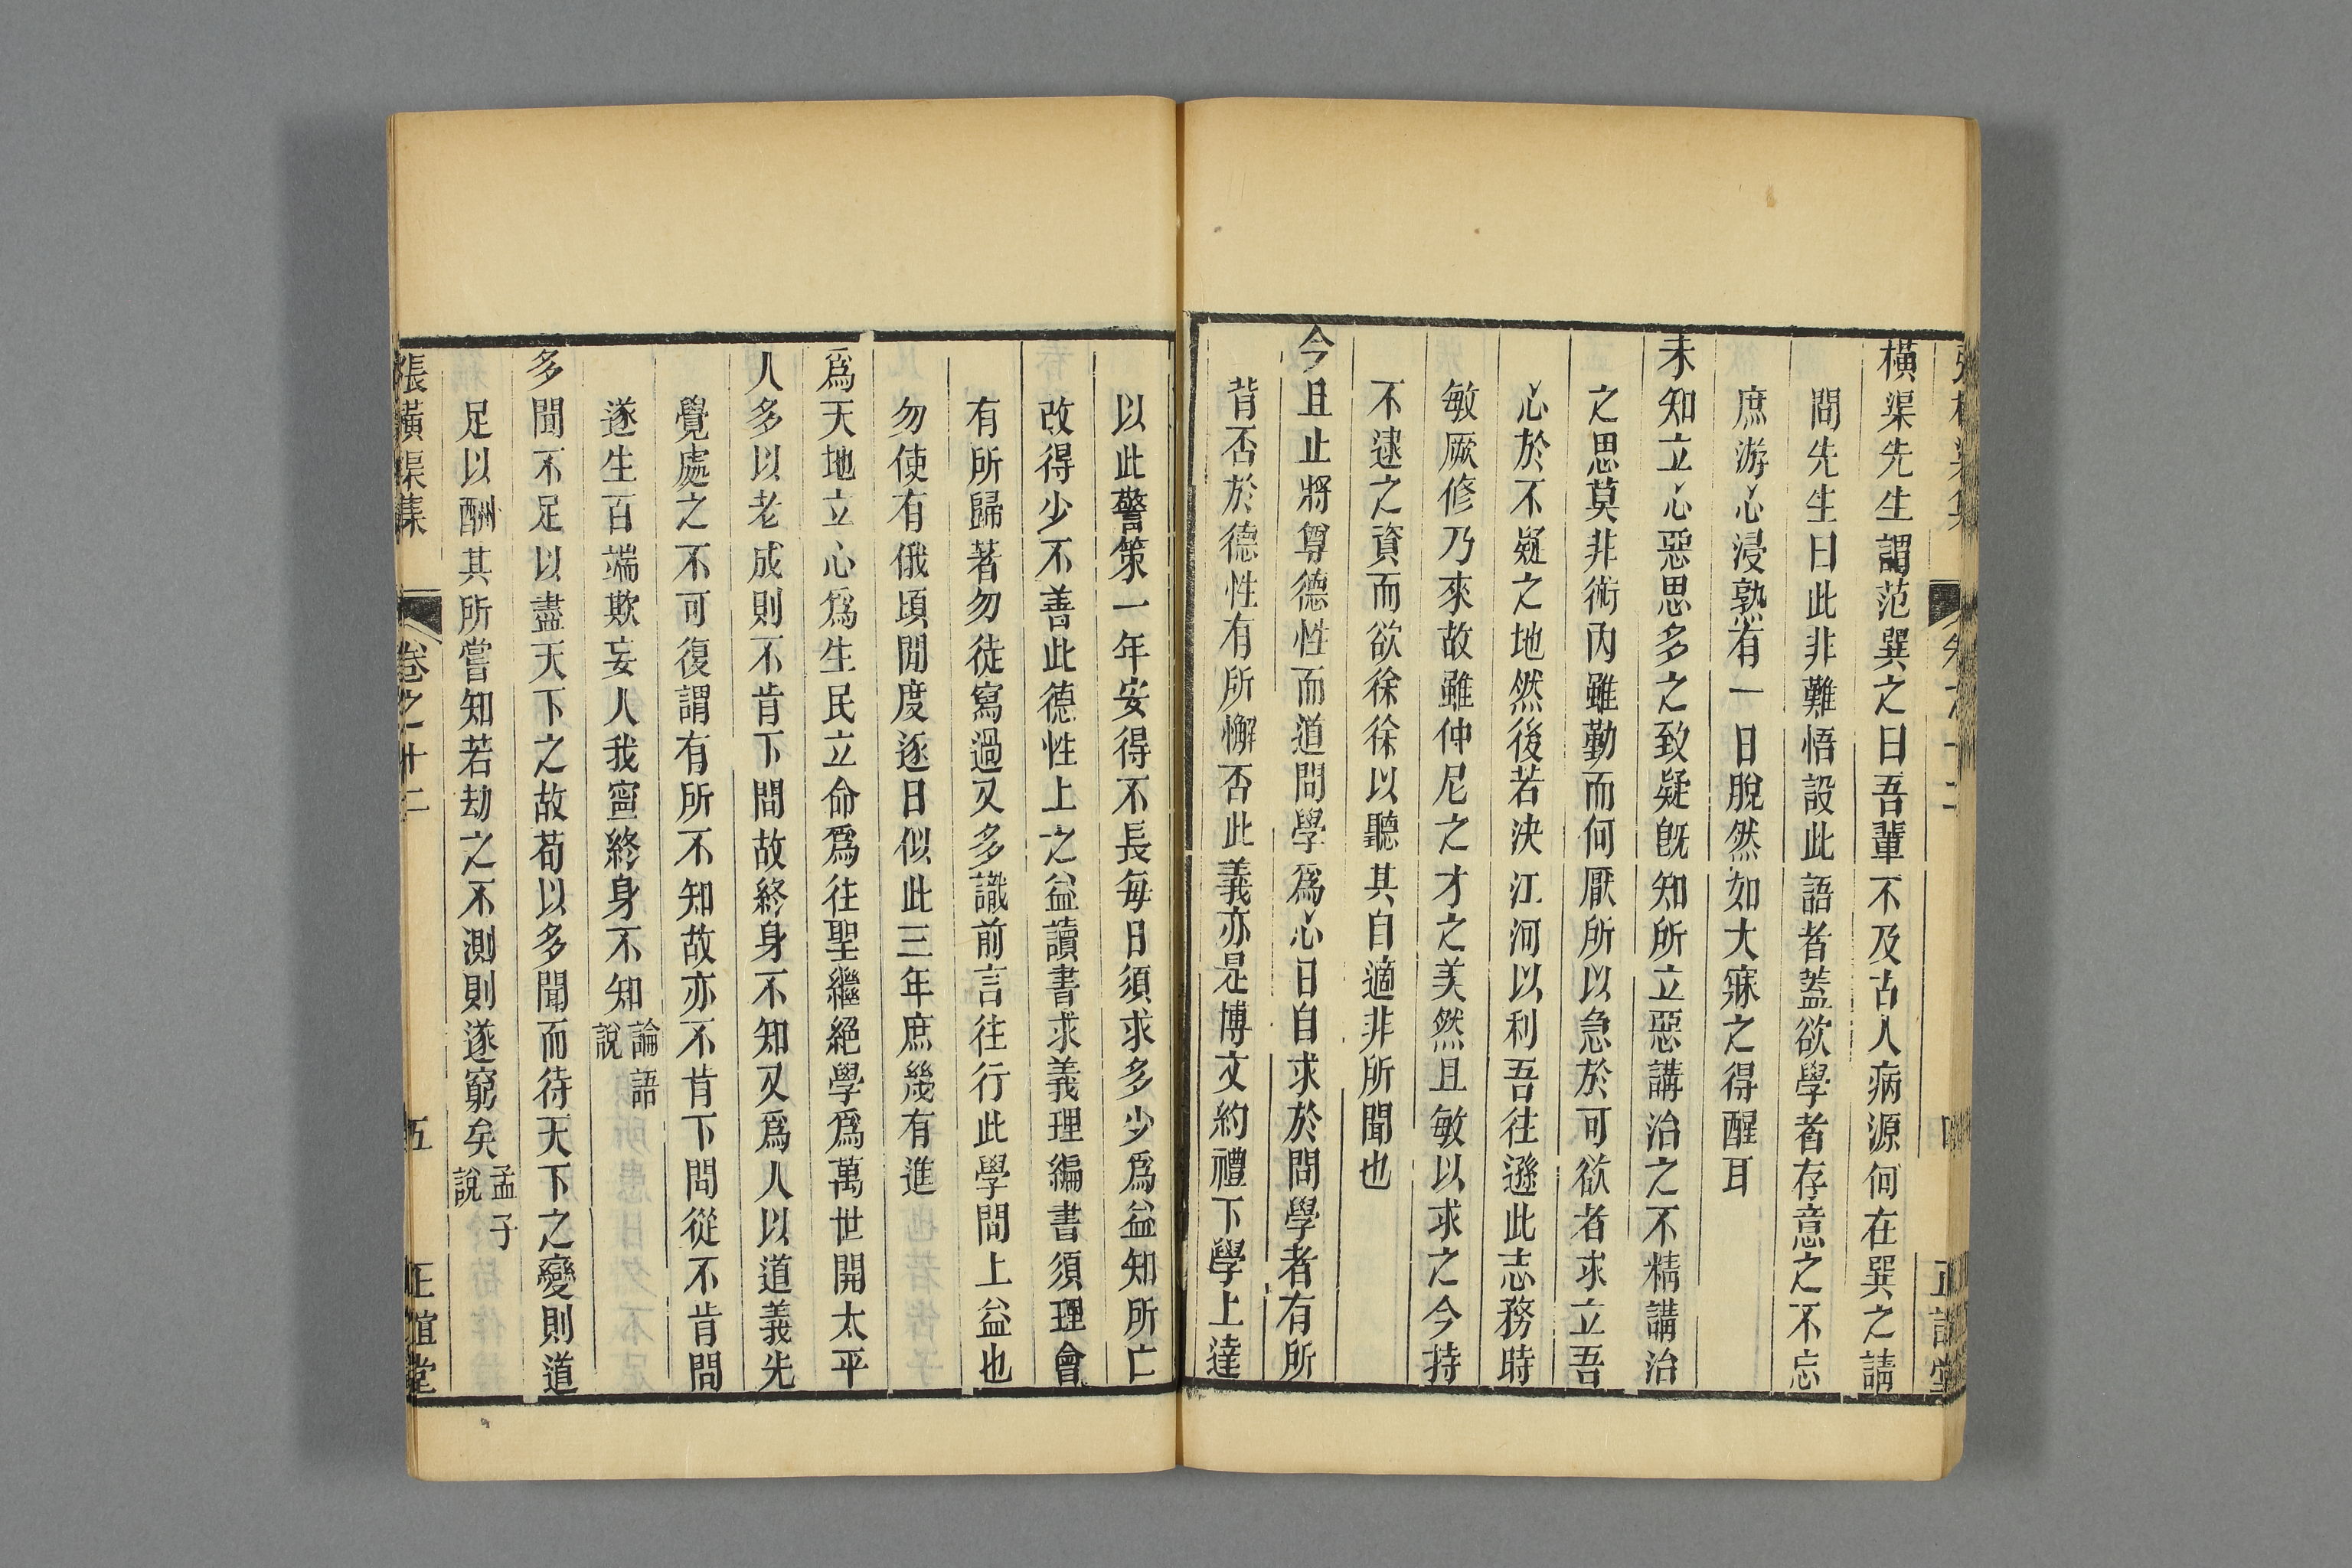 橫渠先生謂范巽之曰吾輩不及古人病源何在巽之請
問先生曰此非難悟設此語者蓋欲學者存意之不忘
庶游心浸熟有一日脫然如大寐之得醒耳
未知立心惡思多之致疑旣知所立惡講治之不精講治
之思莫非術內雖勤而何厭所以急於可欲者求立吾
心於不疑之地然後若決江河以利吾往遜此志務時
敏厥修乃來故雖仲尼之才之美然且敏以求之今持
不逮之資而欲徐徐以聽其自適非所聞也
今且止將尊德性而道問學爲心日自求於問學者有所
背否於德性有所懈否此義亦是博文約禮下學上達
以此警策一年安得不長每日須求多少爲益知所亡
改得少不善此德性上之益讀書求義理編書須理會
有所歸著勿徒寫過又多識前言往行此學問上益也
勿使有俄頃閒度逐日似此三年庶幾有進
爲天地立心爲生民立命爲往聖繼絕學爲萬世開太平
人多以老成則不肯下問故終身不知又爲人以道義先
覺處之不可復謂有所不知故亦不肯下問從不肯問
遂生百端欺妄人我寧終身不知論語說
多聞不足以盡天下之故苟以多聞而待天下之變則道
足以酬其所嘗知若劫之不測則遂窮矣孟子說
張橫渠集 卷之十二 五 正誼堂